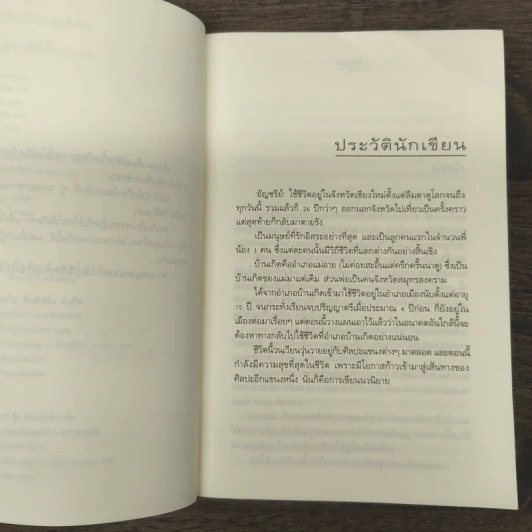 ประวัตินักเขียน
'อัญชรีย์' ใช้ชีวิตอยู่ในจังหวัดเชียงใหม่ตั้งแต่ลืมตาดูโลกจนถึง
ทุกวันนี้ รวมแล้วก็ ๒๖ ปีกว่าๆ ออกนอกจังหวัดไปเที่ยวเป็นครั้งคราว
แต่สุดท้ายก็กลับมาตายรัง
เป็นมนุษย์ที่รักอิสระอย่างที่สุด และเป็นลูกคนแรกในจำนวนพี่
น้อง ๓ คน ซึ่งแต่ละคนนั้นมีวิถีชีวิตที่แตกต่างกันอย่างสิ้นเชิง
บ้านเกิดคืออำเภอแม่อาย (ไม่ค่อยสะอื้นแต่ครึกครื้นน่าดู) ซึ่งเป็น
บ้านเกิดของแม่มาแต่เดิม ส่วนพ่อเป็นคนจังหวัดสมุทรสงคราม
ได้จากอำเภอบ้านเกิดเข้ามาใช้ชีวิตอยู่ในอำเภอเมืองนับตั้งแต่อายุ
๑๕ ปี จนกระทั่งเรียนจบปริญญาตรีเมื่อประมาณ ๔ ปีก่อน ก็ยังอยู่ใน
เมืองต่อมาเรื่อยๆ แต่ตอนนี้วางแผนเอาไว้แล้วว่าในอนาคตอันใกล้นี้จะ
ต้องหาทางกลับไปใช้ชีวิตที่อำเภอบ้านเกิดอย่างแน่นอน
ชีวิตนี้วนเวียนวุ่นวายอยู่กับศิลปะแขนงต่างๆ มาตลอด และตอนนี้
กำลังมีความสุขที่สุดในชีวิต เพราะมีโอกาสก้าวเข้ามาสู่เส้นทางของ
ศิลปะอีกแขนงหนึ่ง นั่นก็คือการเขียนนวนิยาย